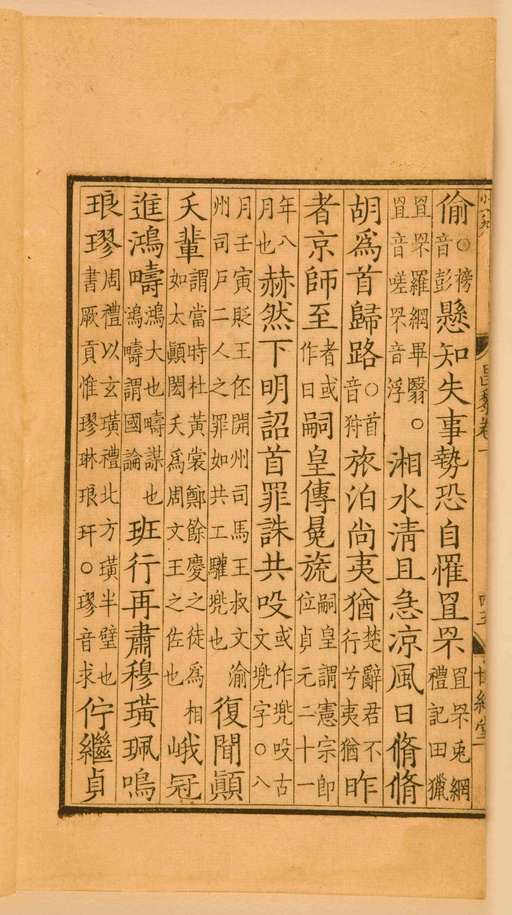 偷○榜音彭懸知失事勢恐自罹罝罘罝罘兎網禮記田獵
罝罘羅網畢翳○罝音嗟罘音浮湘水清且急涼風日脩脩
胡爲首歸路○首音狩旅泊尚夷猶楚辭君不行兮夷猶昨
者京師至者或作日嗣皇傳冕旒嗣皇謂憲宗即位貞元二十一
年八月也赫然下明詔首罪誅共吺或作兠吺古文兠字○八
月壬寅貶王伾開州司馬王叔文渝州司户二人之罪如共工驩兠也復聞顚
夭輩謂當時杜黃裳鄭餘慶之徒爲相如太顚閎夭爲周文王之佐也峨冠
進鴻疇鴻大也疇謀也鴻疇謂國論班行再肅穆璜珮鳴
琅璆周禮以玄璜禮北方璜半璧也書厥貢惟璆琳琅玕○璆音求佇繼貞